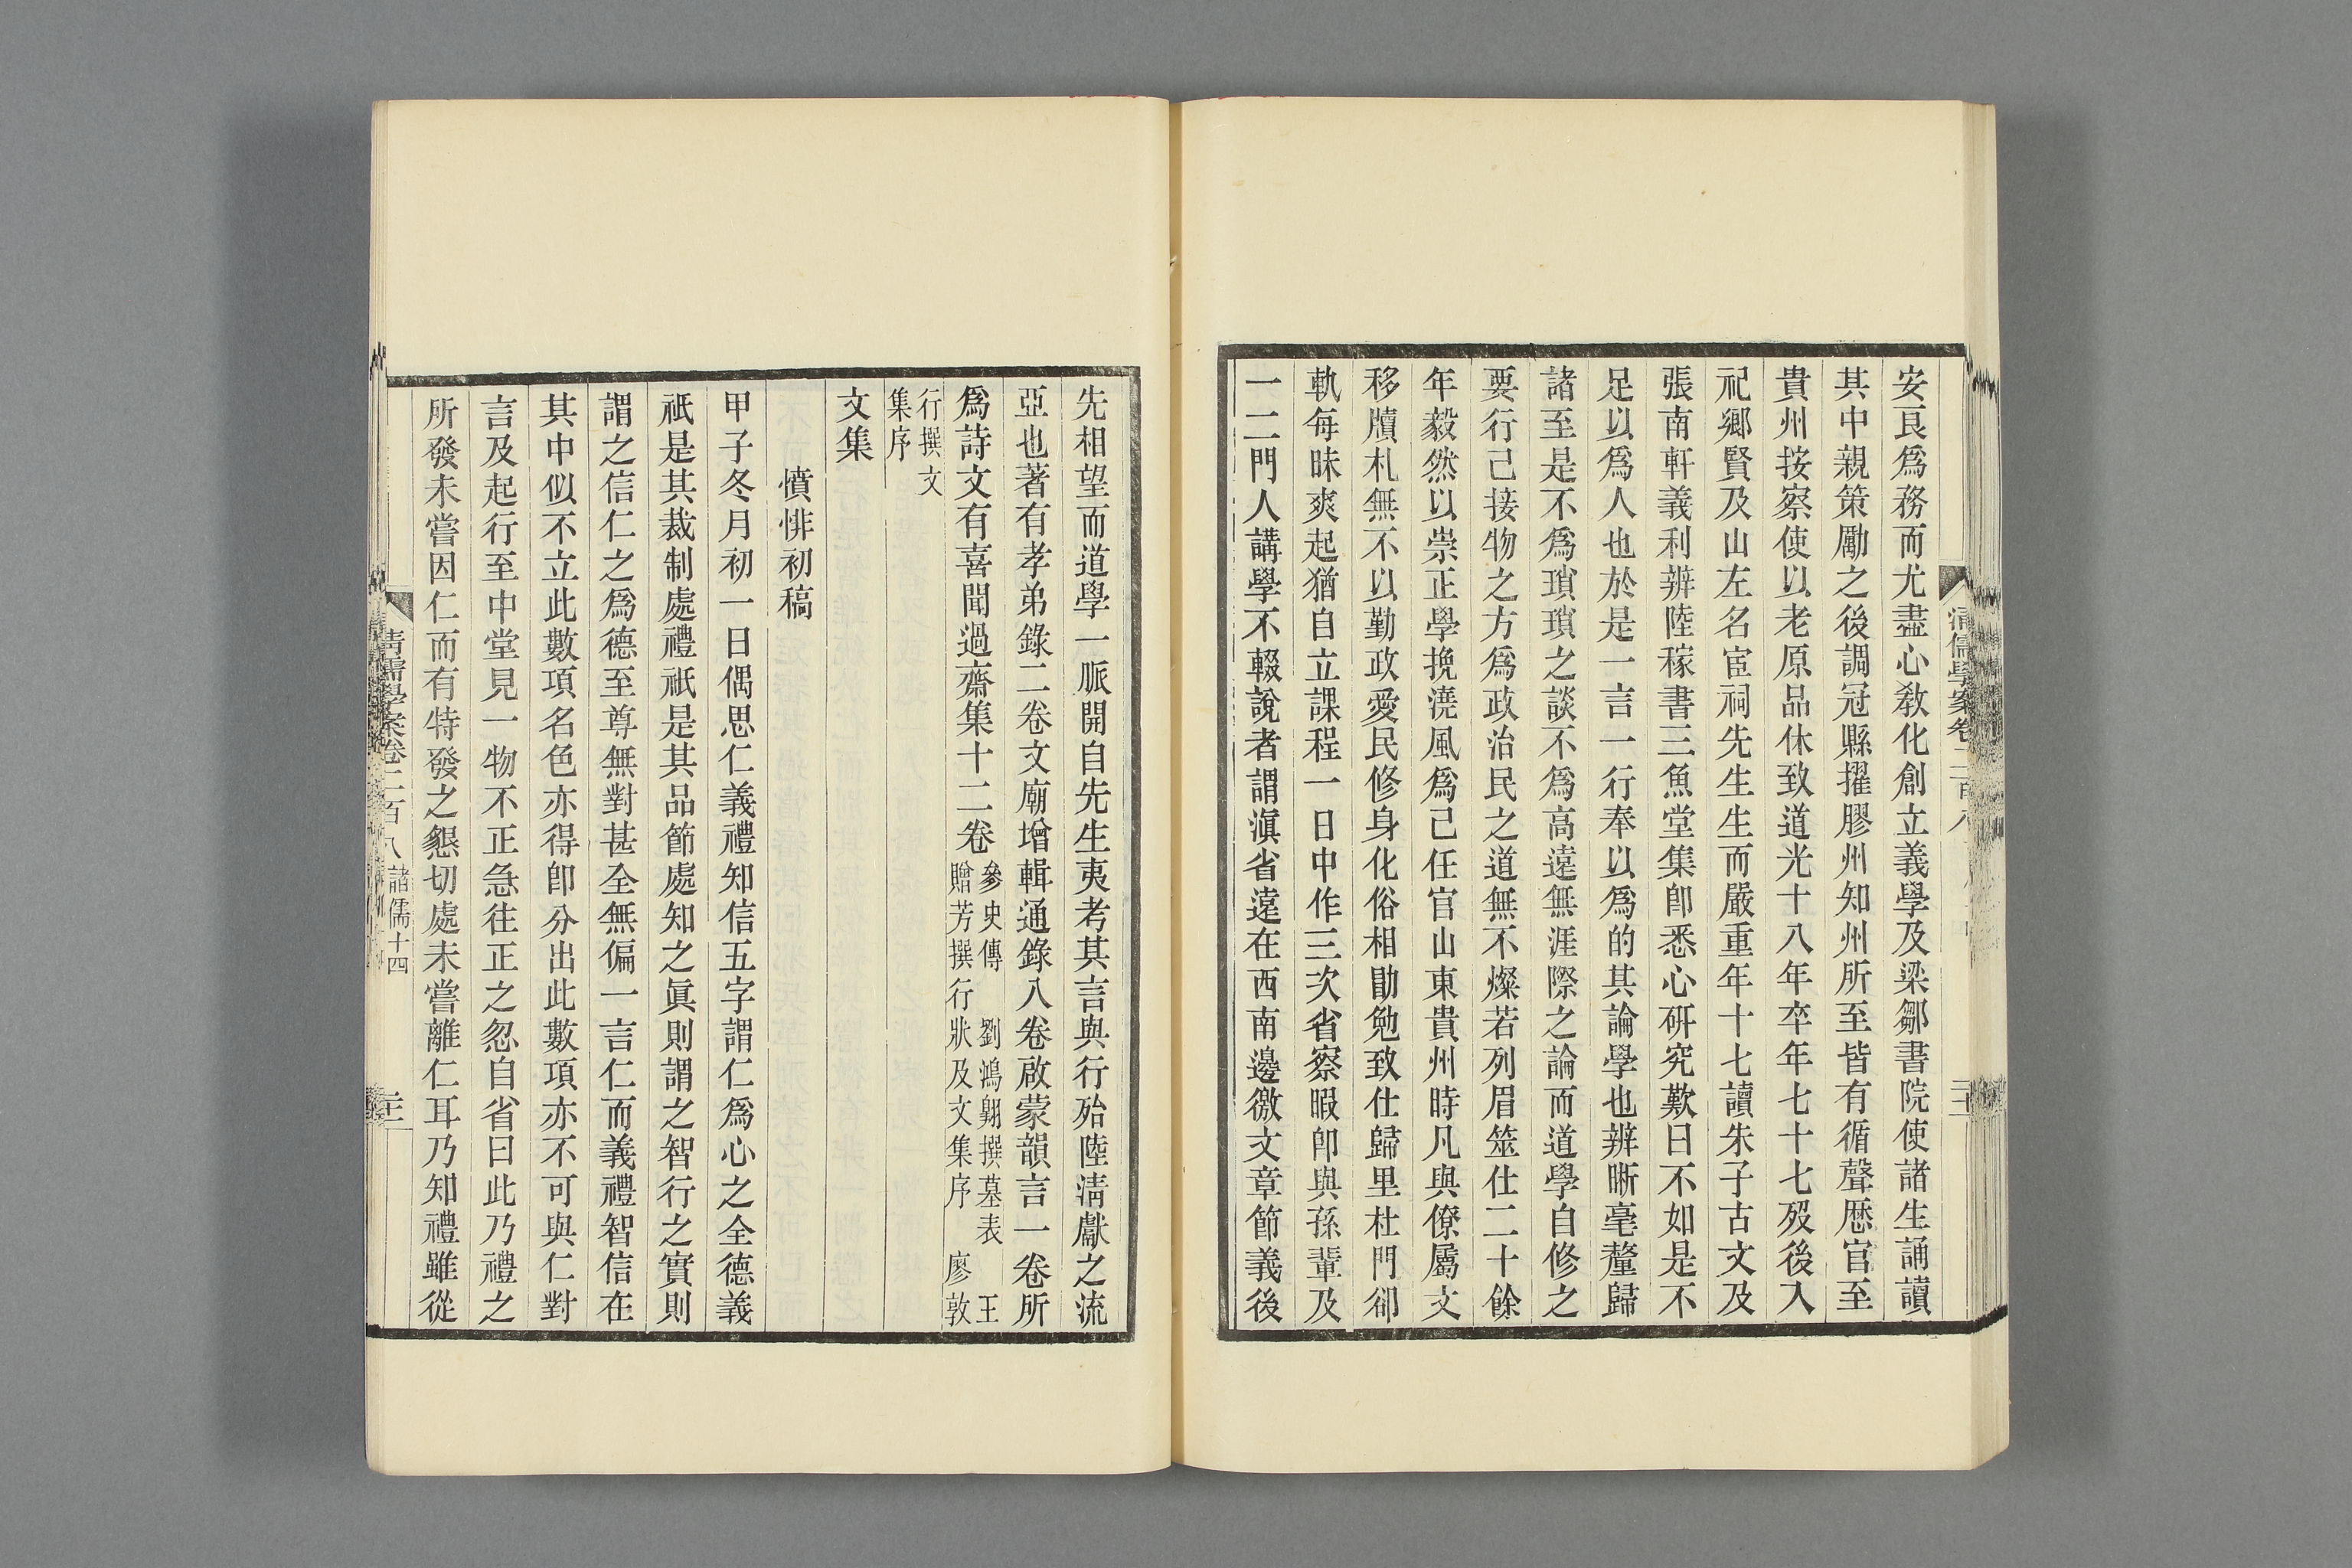 安良爲務而尤盡心敎化創立義學及梁鄒書院使諸生誦讀
其中親策勵之後調冠縣擢膠州知州所至皆有循聲歷官至
貴州按察使以老原品休致道光十八年卒年七十七歿後入
祀鄉賢及山左名宦祠先生生而嚴重年十七讀朱子古文及
張南軒義利辨陸稼書三魚堂集卽悉心硏究歎曰不如是不
足以爲人也於是一言一行奉以爲的其論學也辨晰毫釐歸
諸至是不爲瑣瑣之談不爲高遠無涯際之論而道學自修之
要行己接物之方爲政治民之道無不燦若列眉筮仕二十餘
年毅然以崇正學挽澆風爲己任官山東貴州時凡與僚屬文
移牘札無不以勤政愛民修身化俗相勖勉致仕歸里杜門卻
軌每昧爽起猶自立課程一日中作三次省察暇卽與孫輩及
一二門人講學不輟說者謂滇省遠在西南邊徼文章節義後
先相望而道學一脈開自先生夷考其言與行殆陸淸獻之流
亞也著有孝弟錄二卷文廟增輯通錄八卷啟蒙韻言一卷所
爲詩文有喜聞過齋集十二卷
參史傳 劉鴻翺撰墓表 王
贈芳撰行狀及文集序 廖敦
行撰文
集序
文集
憤悱初稿
甲子冬月初一日偶思仁義禮知信五字謂仁爲心之全德義
祇是其裁制處禮祇是其品節處知之眞則謂之智行之實則
謂之信仁之爲德至尊無對甚全無偏一言仁而義禮智信在
其中似不立此數項名色亦得卽分出此數項亦不可與仁對
言及起行至中堂見一物不正急往正之忽自省曰此乃禮之
所發未嘗因仁而有特發之懇切處未嘗離仁耳乃知禮雖從
淸儒學案卷二百八 諸儒十四